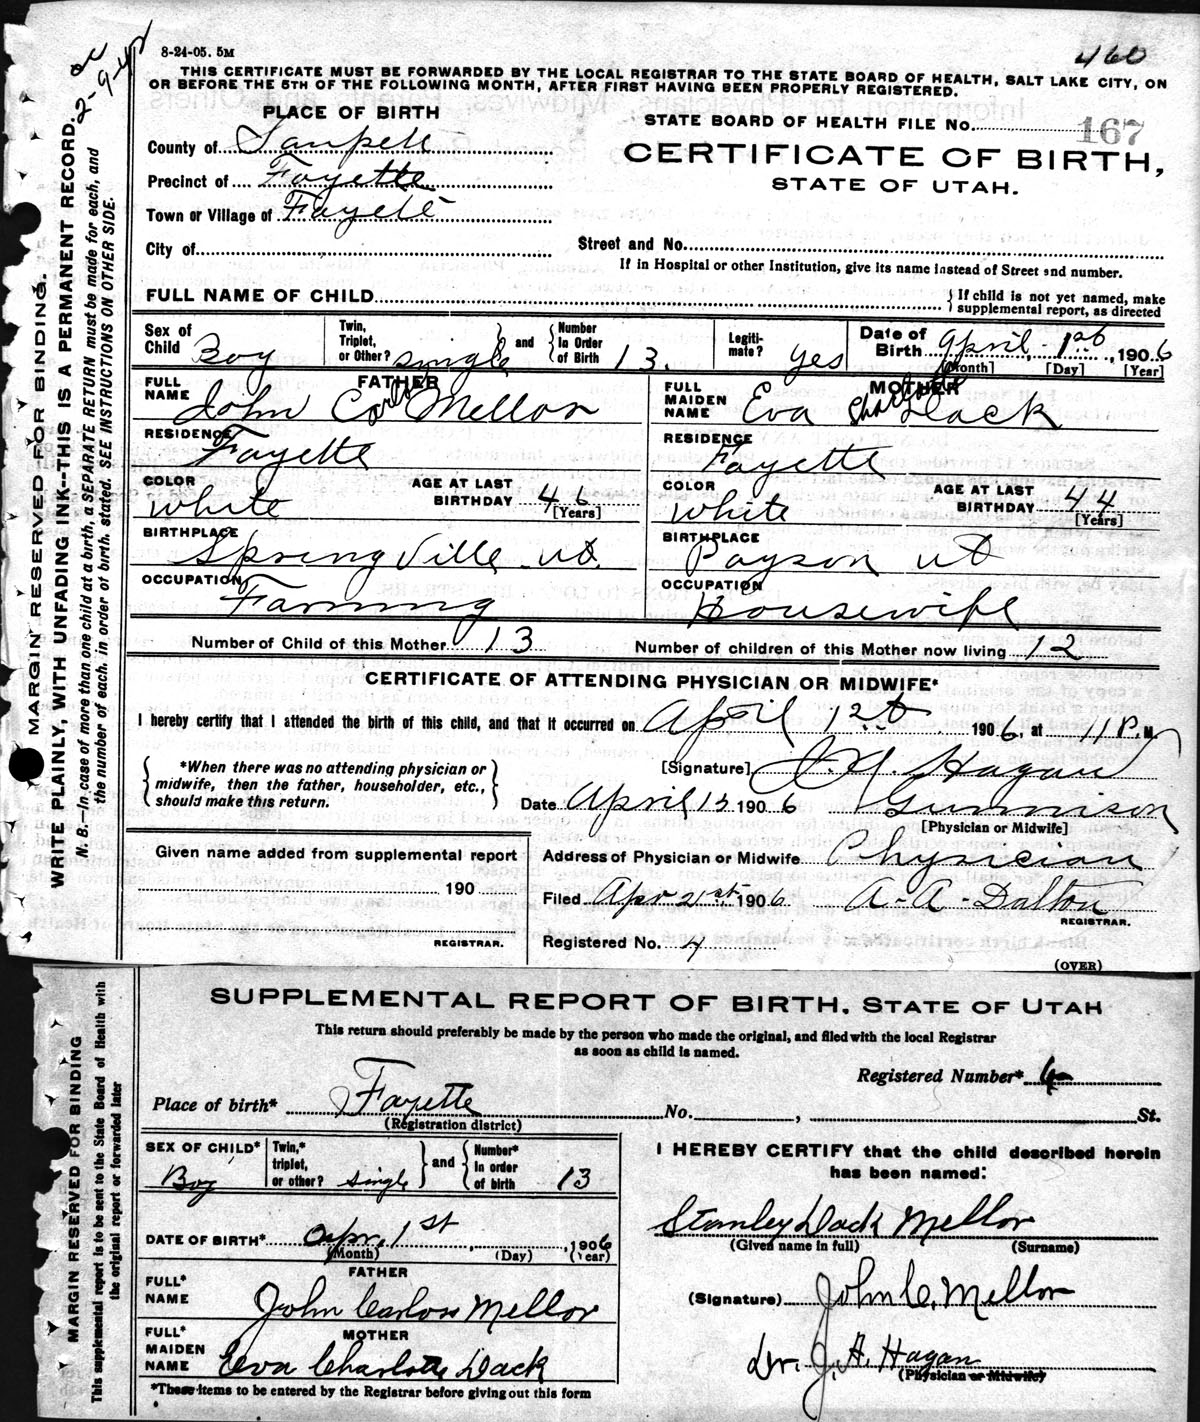 8-24-05. 5M
460
THIS CERTIFICATE MUST BE FORWARDED BY THE LOCAL REGISTRAR TO THE STATE BOARD OF HEALTH, SALT LAKE CITY, ON
OR BEFORE THE 5TH OF THE FOLLOWING MONTH, AFTER FIRST HAVING BEEN PROPERLY REGISTERED.
2-9-42
MARGIN RESERVED FOR BINDING.
WRITE PLAINLY, WITH UNFADING INK--THIS IS A PERMANENT RECORD.
N. B.—In case of more than one child at a birth, a SEPARATE RETURN must be made for each, and
the number of each, in order of birth, stated. SEE INSTRUCTIONS ON OTHER SIDE.
PLACE OF BIRTH
County of Sanpete
Precinct of Fayette
Town or Village of Fayette
City of
STATE BOARD OF HEALTH FILE No. 167
CERTIFICATE OF BIRTH,
STATE OF UTAH.
Street and No.
If in Hospital or other Institution, give its name instead of Street and number.
FULL NAME OF CHILD
If child is not yet named, make
supplemental report, as directed
Sex of Child Boy
Twin, Triplet, or Other? single and Number In Order of Birth 13.
Legitimate? yes
Date of Birth April 1st, 1906
[Month] [Day] [Year]
FATHER
FULL NAME John Carlos Mellor
RESIDENCE Fayette
COLOR White
AGE AT LAST BIRTHDAY 46 [Years]
BIRTHPLACE Springville ut.
OCCUPATION Farming
MOTHER
FULL MAIDEN NAME Eva Charlotte Dack
RESIDENCE Fayette
COLOR White
AGE AT LAST BIRTHDAY 44 [Years]
BIRTHPLACE Payson ut
OCCUPATION Housewife
Number of Child of this Mother 13
Number of children of this Mother now living 12
CERTIFICATE OF ATTENDING PHYSICIAN OR MIDWIFE*
I hereby certify that I attended the birth of this child, and that it occurred on April 1st 1906, at 11 P. M.
*When there was no attending physician or
midwife, then the father, householder, etc.,
should make this return.
[Signature] Hagan
Date April 13 1906 Gunnison
[Physician or Midwife]
Given name added from supplemental report
190
REGISTRAR.
Address of Physician or Midwife Physician
Filed Apr 21st 1906 A-A-Dalton
REGISTRAR.
Registered No. 4
(OVER)
MARGIN RESERVED FOR BINDING
This supplemental report is to be sent to the State Board of Health with
the original report or forwarded later
SUPPLEMENTAL REPORT OF BIRTH, STATE OF UTAH
This return should preferably be made by the person who made the original, and filed with the local Registrar
as soon as child is named.
Registered Number* 4
Place of birth* Fayette No. , St.
(Registration district)
SEX OF CHILD* Boy
Twin,* triplet, or other? single and Number* In order of birth 13
DATE OF BIRTH* Apr. 1st, 1906
(Month) (Day) (Year)
FATHER
FULL* NAME John Carloss Mellor
MOTHER
FULL* MAIDEN NAME Eva Charlotte Dack
*These items to be entered by the Registrar before giving out this form
I HEREBY CERTIFY that the child described herein
has been named:
Stanley Dack Mellor
(Given name in full) (Surname)
(Signature) John C. Mellor
Dr. J. H. Hagan
(Physician or Midwife)